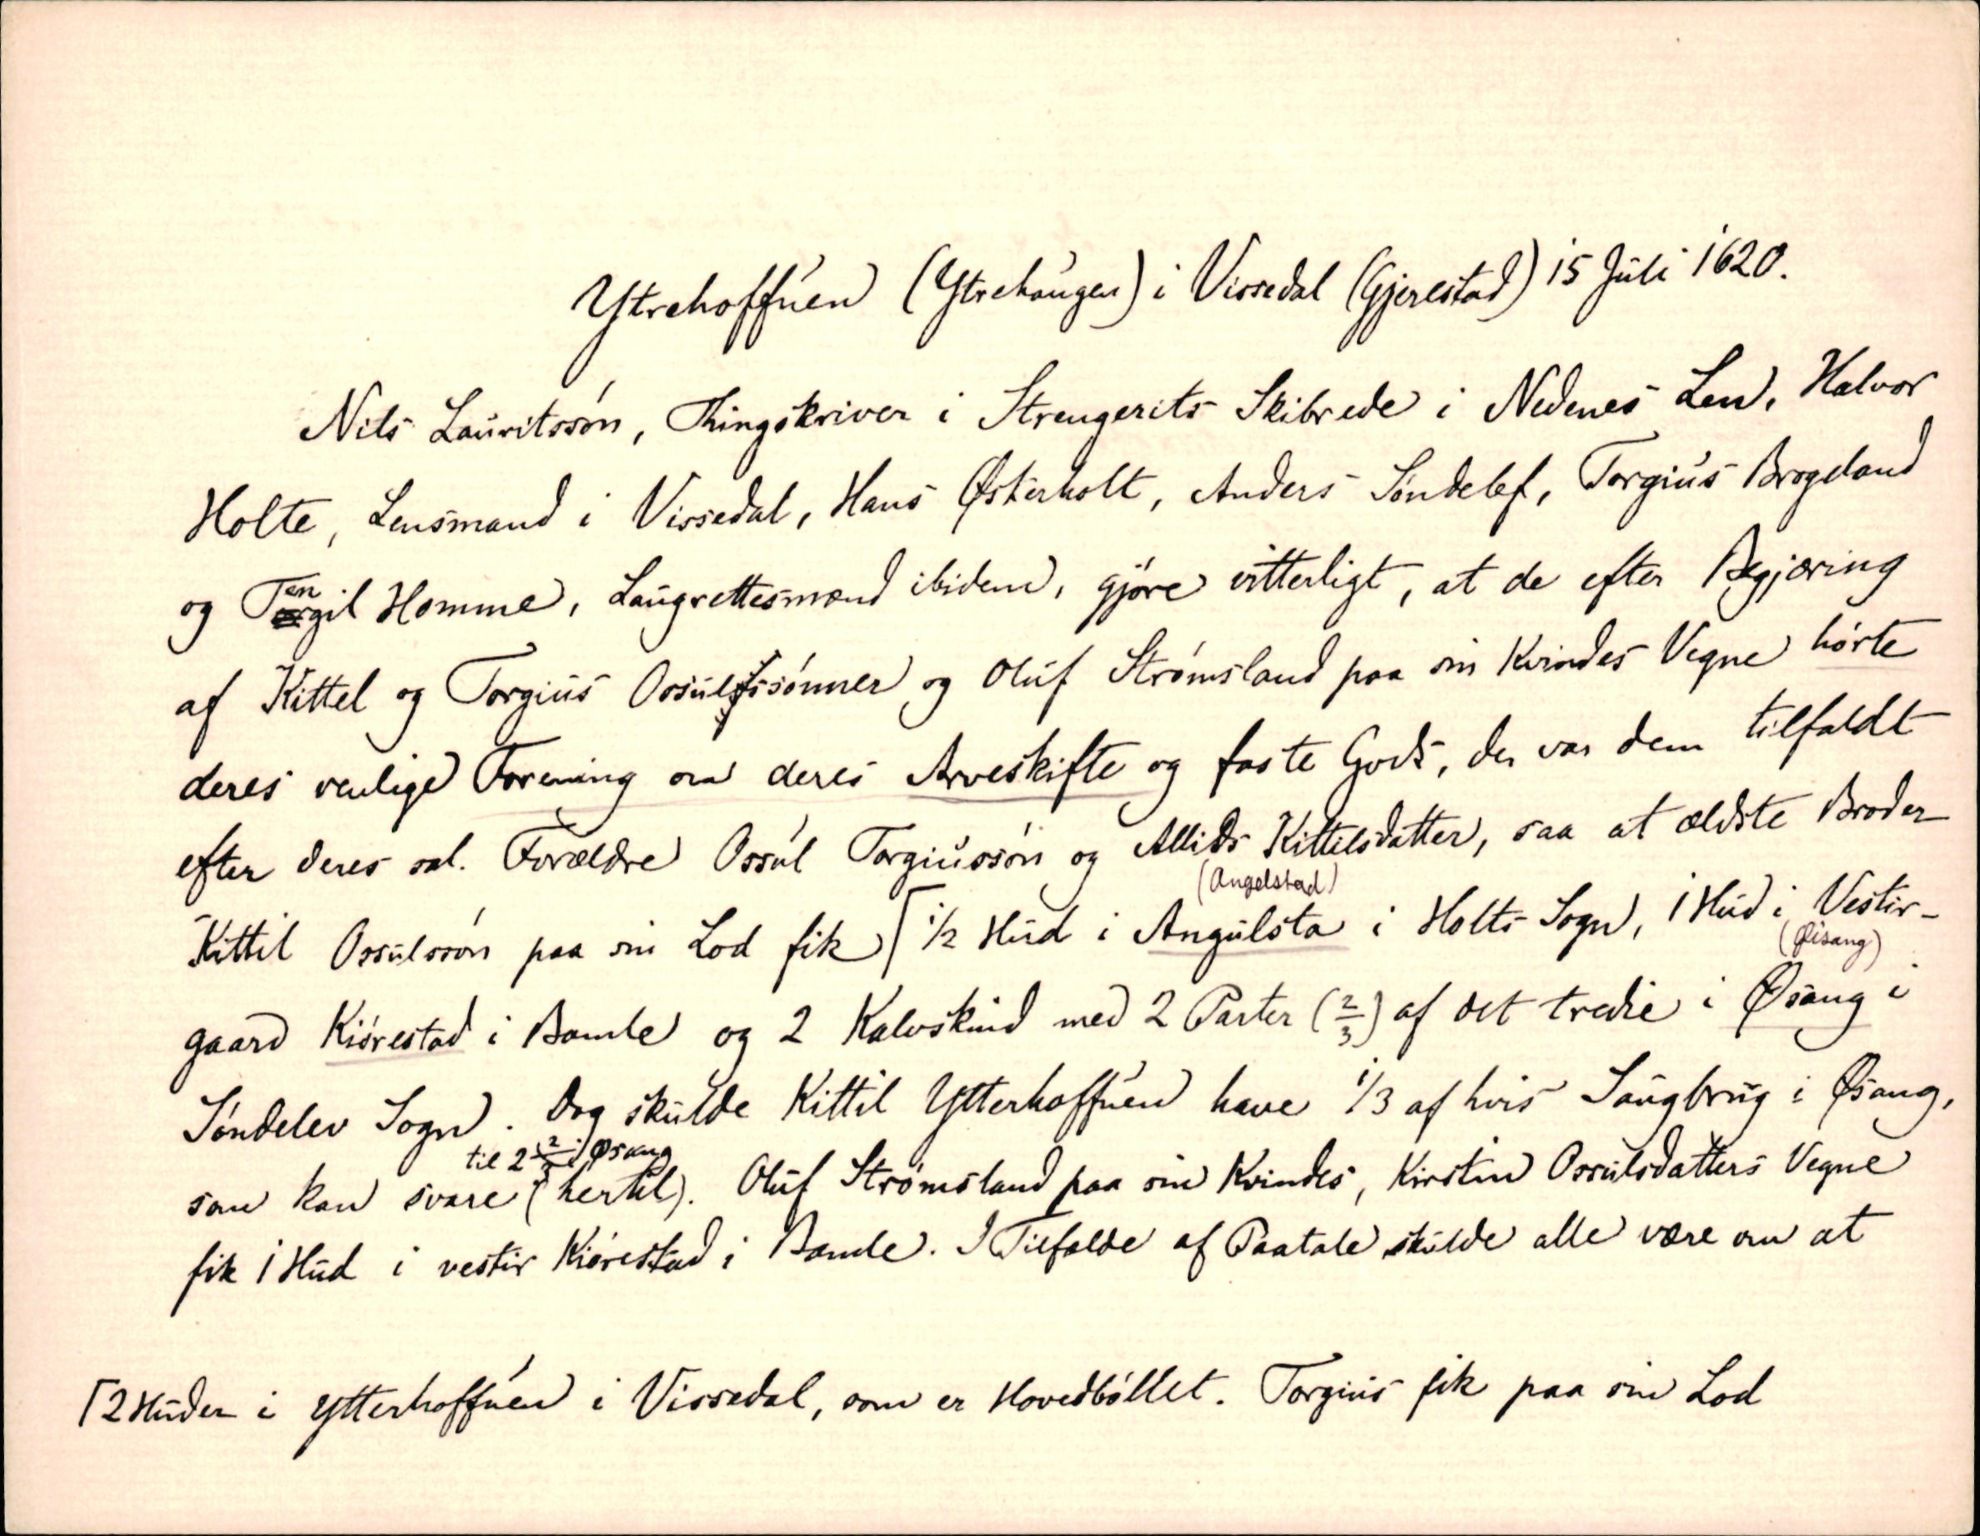 Ytrehoffuen (Ytrehaugen) i Vissedal (Gjerestad) 15 Juli 1620.
Nils Lauritssøn, Thingskriver i Strengereits Skibrede i Nedenes Len, Halvor
Holte, Lensmand i Vissedal, Hans Østerholt, Anders Søndelef, Torgius Brogeland
og Tengil Homme, Laugrettesmænd ibidem, gjøre vitterligt, at de efter Begjæring
af Kittel og Torgius Ossulfssønner og Oluf Strømsland paa sin Kvindes Vegne hørte
deres venlige Forening om deres Arveskifte og faste Gods, der var dem tilfaldt
efter deres sal. Forældre Ossul Torgiussøn og Allids Kittilsdatter, saa at ældste Broder
(Angelstad)
Kittil Ossulssøn paa sin Lod fik ⌈ 1/2 Hud i Angulsta i Holts Sogn, 1 Hud i Vestir-
(Øisang)
gaard Kiørestad i Bamle og 2 Kalvskind med 2 Parter (2/3) af det tredie i Øsang i
Søndelev Sogn. Dog skulde Kittil Ytterhoffuen have 1/3 af hvis Saugbrug i Øsang,
til 2 2/3 i Øsang
som kan svare (hertil). Oluf Strømsland paa sin Kvindes, Kirstin Ossulsdatters Vegne
fik 1 Hud i vestir Kiørestad i Bamle. I Tilfælde af Paatale skulde alle være om at
⌈ 2 Huder i Ytterhoffuen i Vissedal, som er Hovedbøllet. Torgius fik paa sin Lod